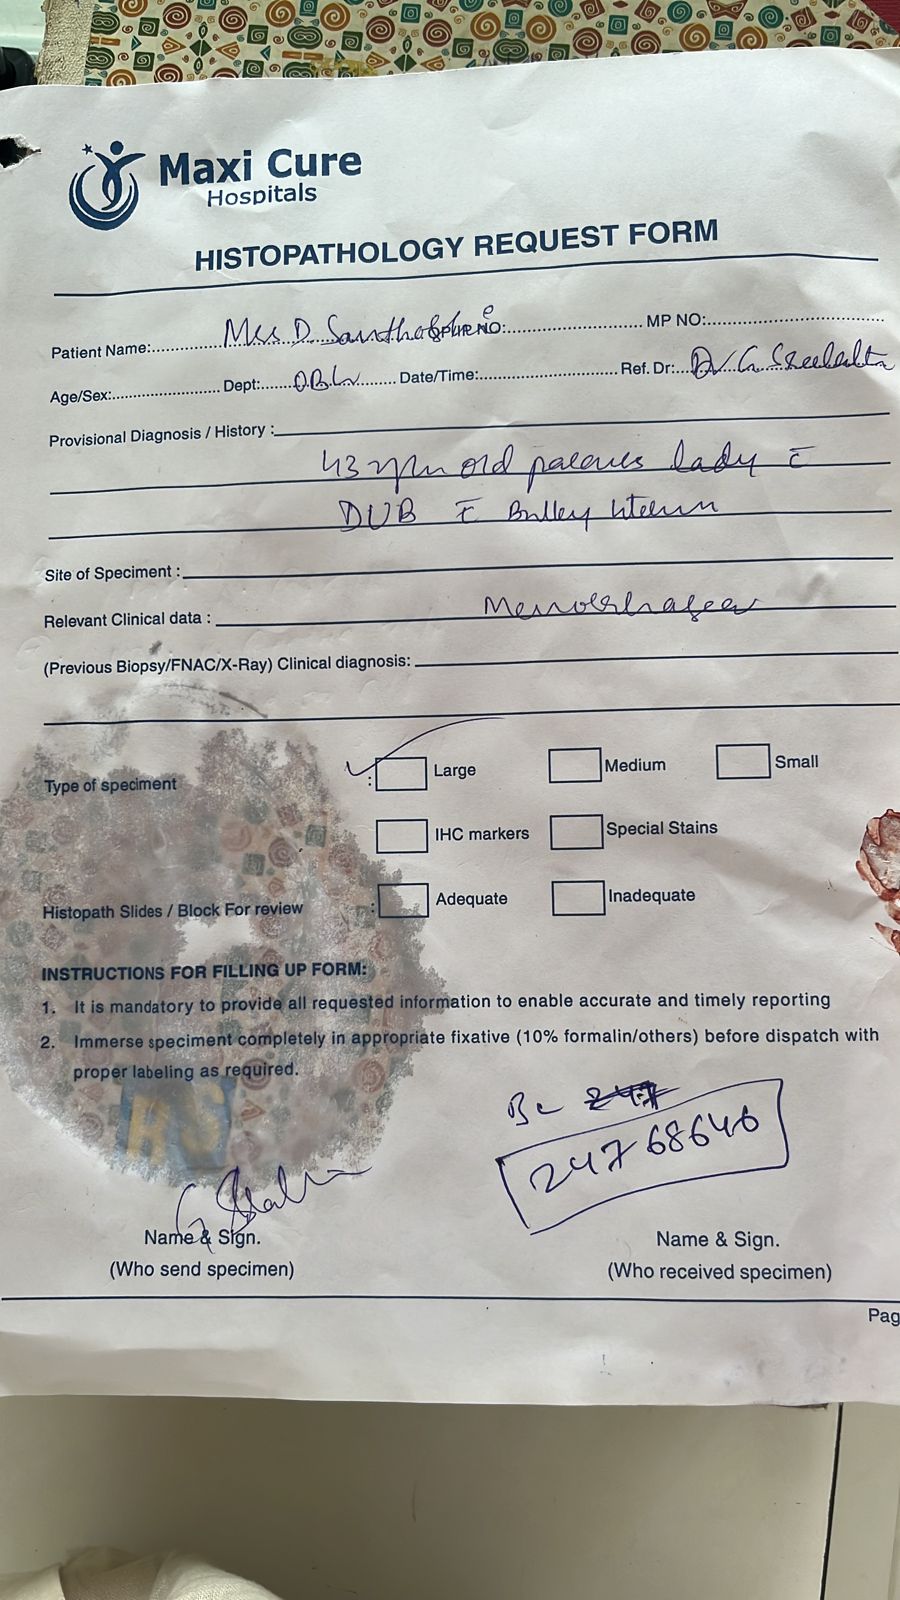 Maxi Cure
Hospitals
HISTOPATHOLOGY REQUEST FORM
Patient Name: Mrs D. NO: MP NO:
Age/Sex: Dept: Date/Time: Ref. Dr: Dr. G.
Provisional Diagnosis / History :
43 old lady c̄
DUB c̄ Bulky uterus
Site of Specimen :
Relevant Clinical data :
(Previous Biopsy/FNAC/X-Ray) Clinical diagnosis:
Type of speciment : Large Medium Small
IHC markers Special Stains
Histopath Slides / Block For review : Adequate Inadequate
INSTRUCTIONS FOR FILLING UP FORM:
1. It is mandatory to provide all requested information to enable accurate and timely reporting
2. Immerse speciment completely in appropriate fixative (10% formalin/others) before dispatch with
proper labeling as required.
RS
24768646
Name & Sign. Name & Sign.
(Who send specimen) (Who received specimen)
Pag